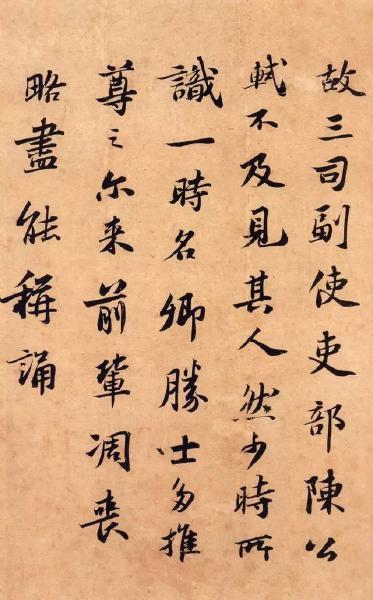 故三司副使吏部陳公
軾不及見其人然少時所
識一時名卿勝士多推
尊之尔来前輩凋喪
略盡能稱誦